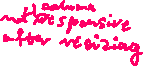 column
not responsive
after resizing